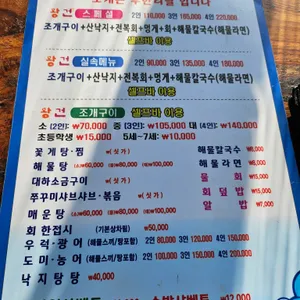 조개는 무한리필 입니다
왕건 스페셜 2인 110,000 3인 165,000 4인 220,000
조개구이+산낙지+전복회+멍게+회+해물칼국수(해물라면)
셀프바 이용
왕건 실속메뉴 2인 90,000 3인 135,000 4인 180,000
조개구이+산낙지+전복회+멍게+해물칼국수(해물라면)
셀프바 이용
왕건 조개구이 셀프바 이용
소 (2인) ₩70,000 중 (3인) ₩105,000 대 (4인) ₩140,000
초등학생 ₩15,000 5세~7세 ₩10,000
꽃게탕·찜 ₩(싯가) 해물칼국수 ₩8,000
해물탕 (소)₩60,000 (중)₩80,000 (대)₩100,000 해물라면
대하소금구이 ₩(싯가) 물회
쭈꾸미샤브샤브·볶음 ₩(싯가) 회덮밥
매운탕 알밥 ₩7,000
회한접시 (기본상차림) ₩50,000
우럭·광어 (해물스끼/탕포함) 2인 80,000 3인 120,000 4인 150,000
도미·농어 (해물스끼/탕포함) 2인 100,000 3인 160,000 4인 200,000
낙지탕탕 ₩40,000